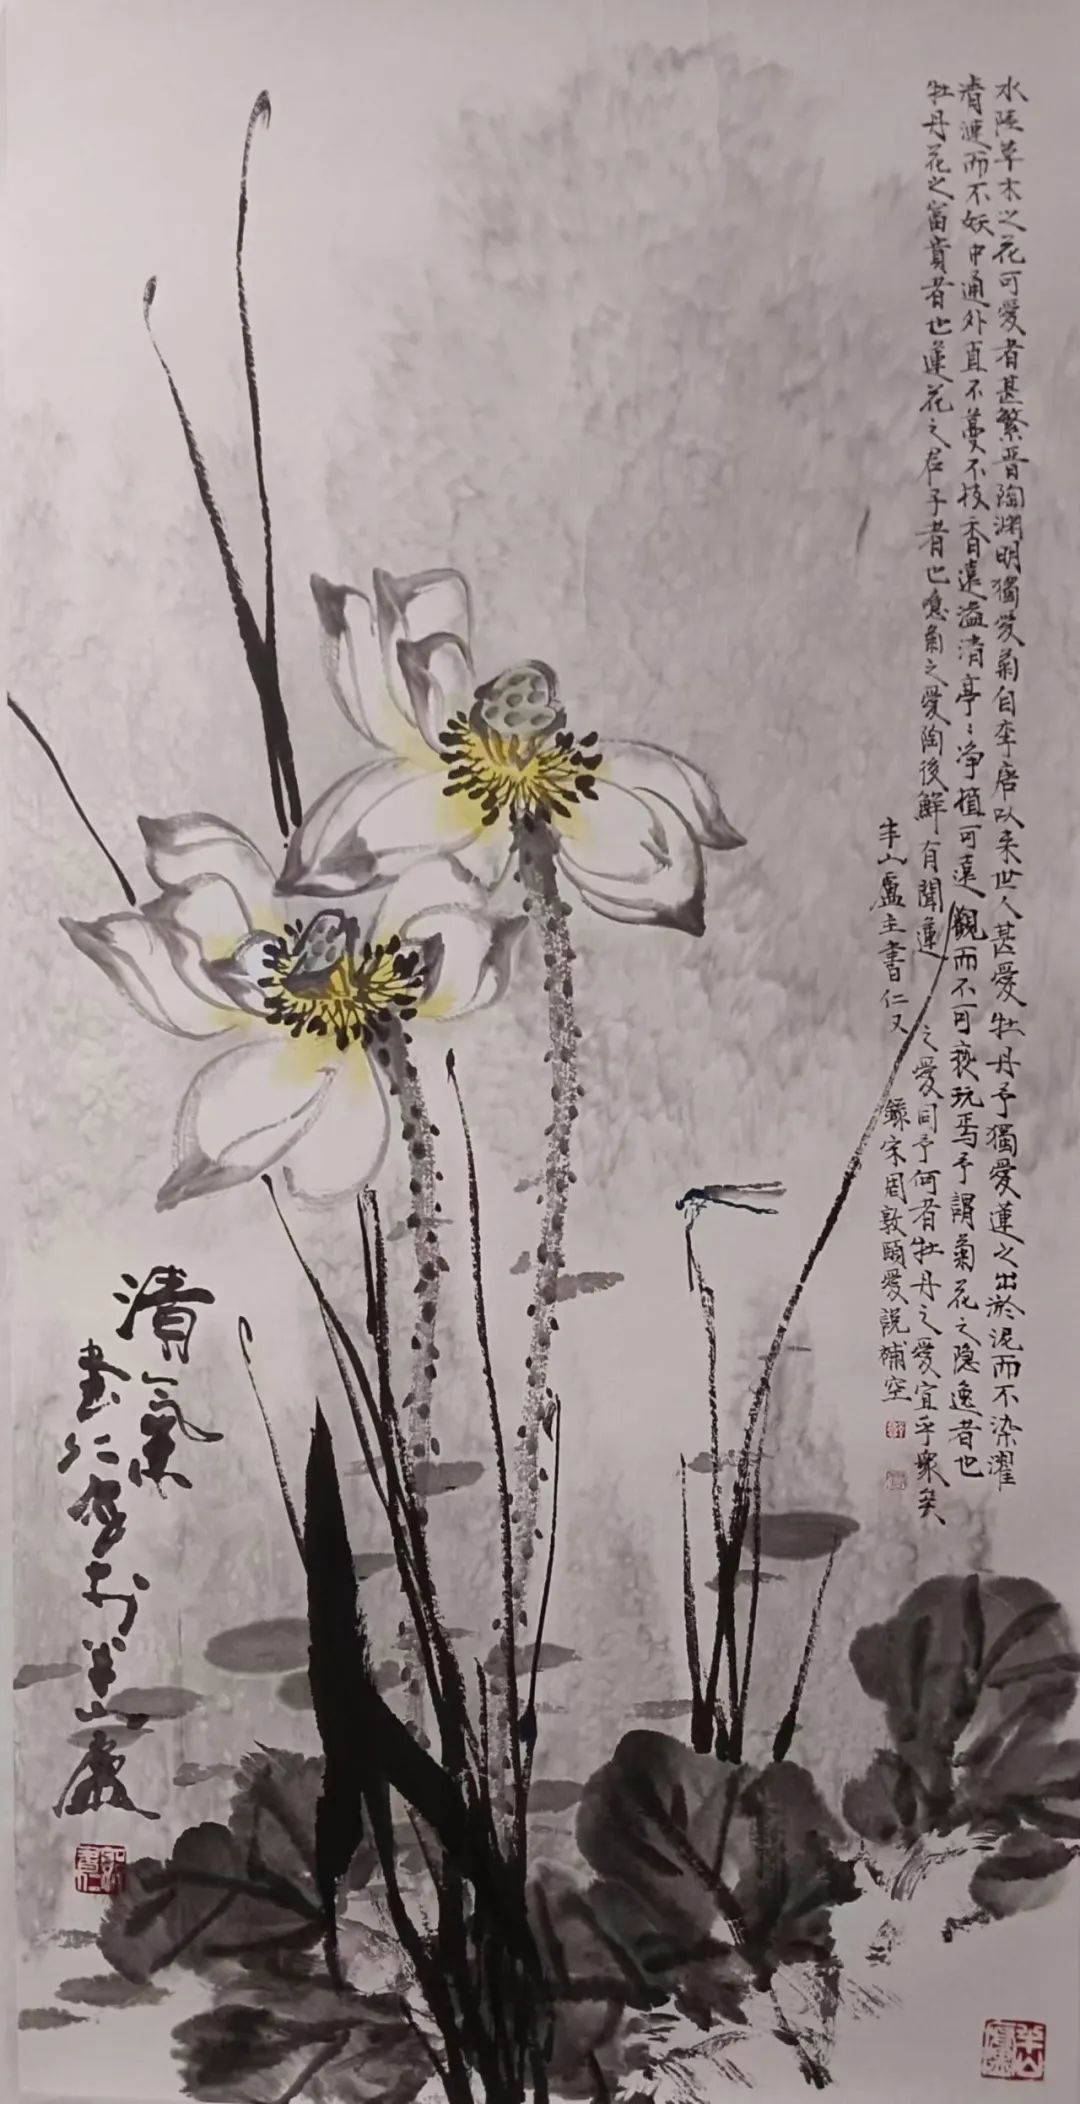 水陸草木之花可愛者甚繁晉陶渊明獨愛菊自李唐以来世人甚愛牡丹予獨愛蓮之出於泥而不染濯
清漣而不妖中通外直不蔓不枝香遠溢清亭〻净植可遠觀而不可褻玩焉予謂菊花之隐逸者也
牡丹花之富貴者也蓮花之君子者也噫菊之愛陶後鮮有聞蓮之愛同予何者牡丹之愛宜乎衆矣
半山廬主書仁又錄宋周敦頤愛說補空
清氣
書仁写於半山廬